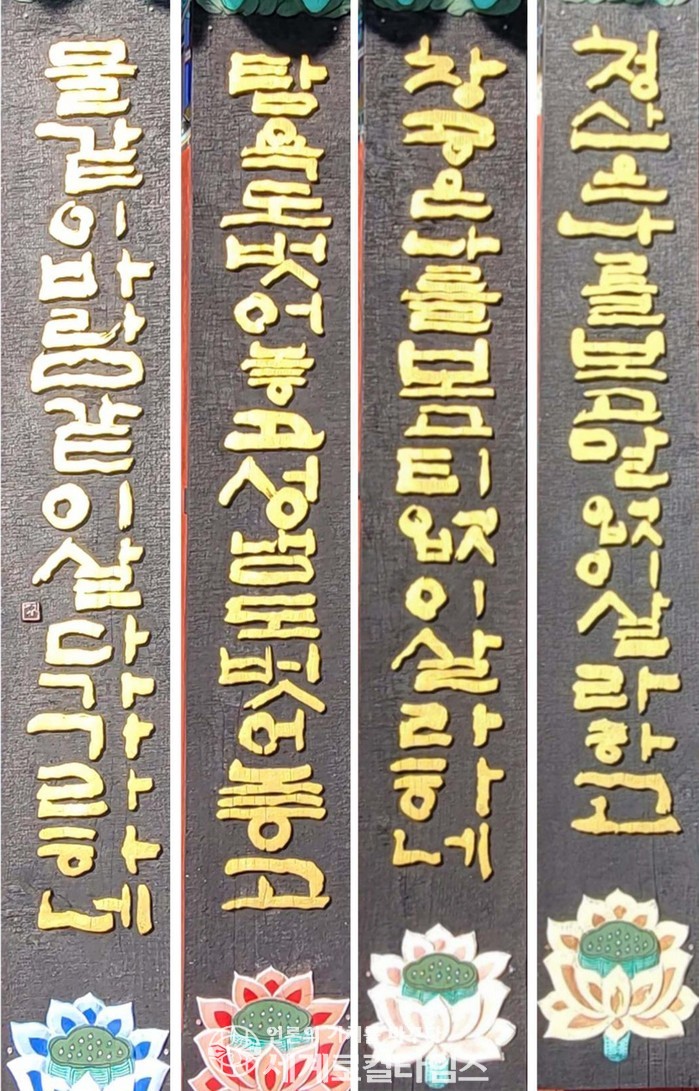 청산은나를보고말없이살라하고
창공은나를보고티없이살라하네
탐욕도벗어놓고성냄도벗어놓고
물같이바람같이살다가가라하네
언론의
세계로컬타임즈